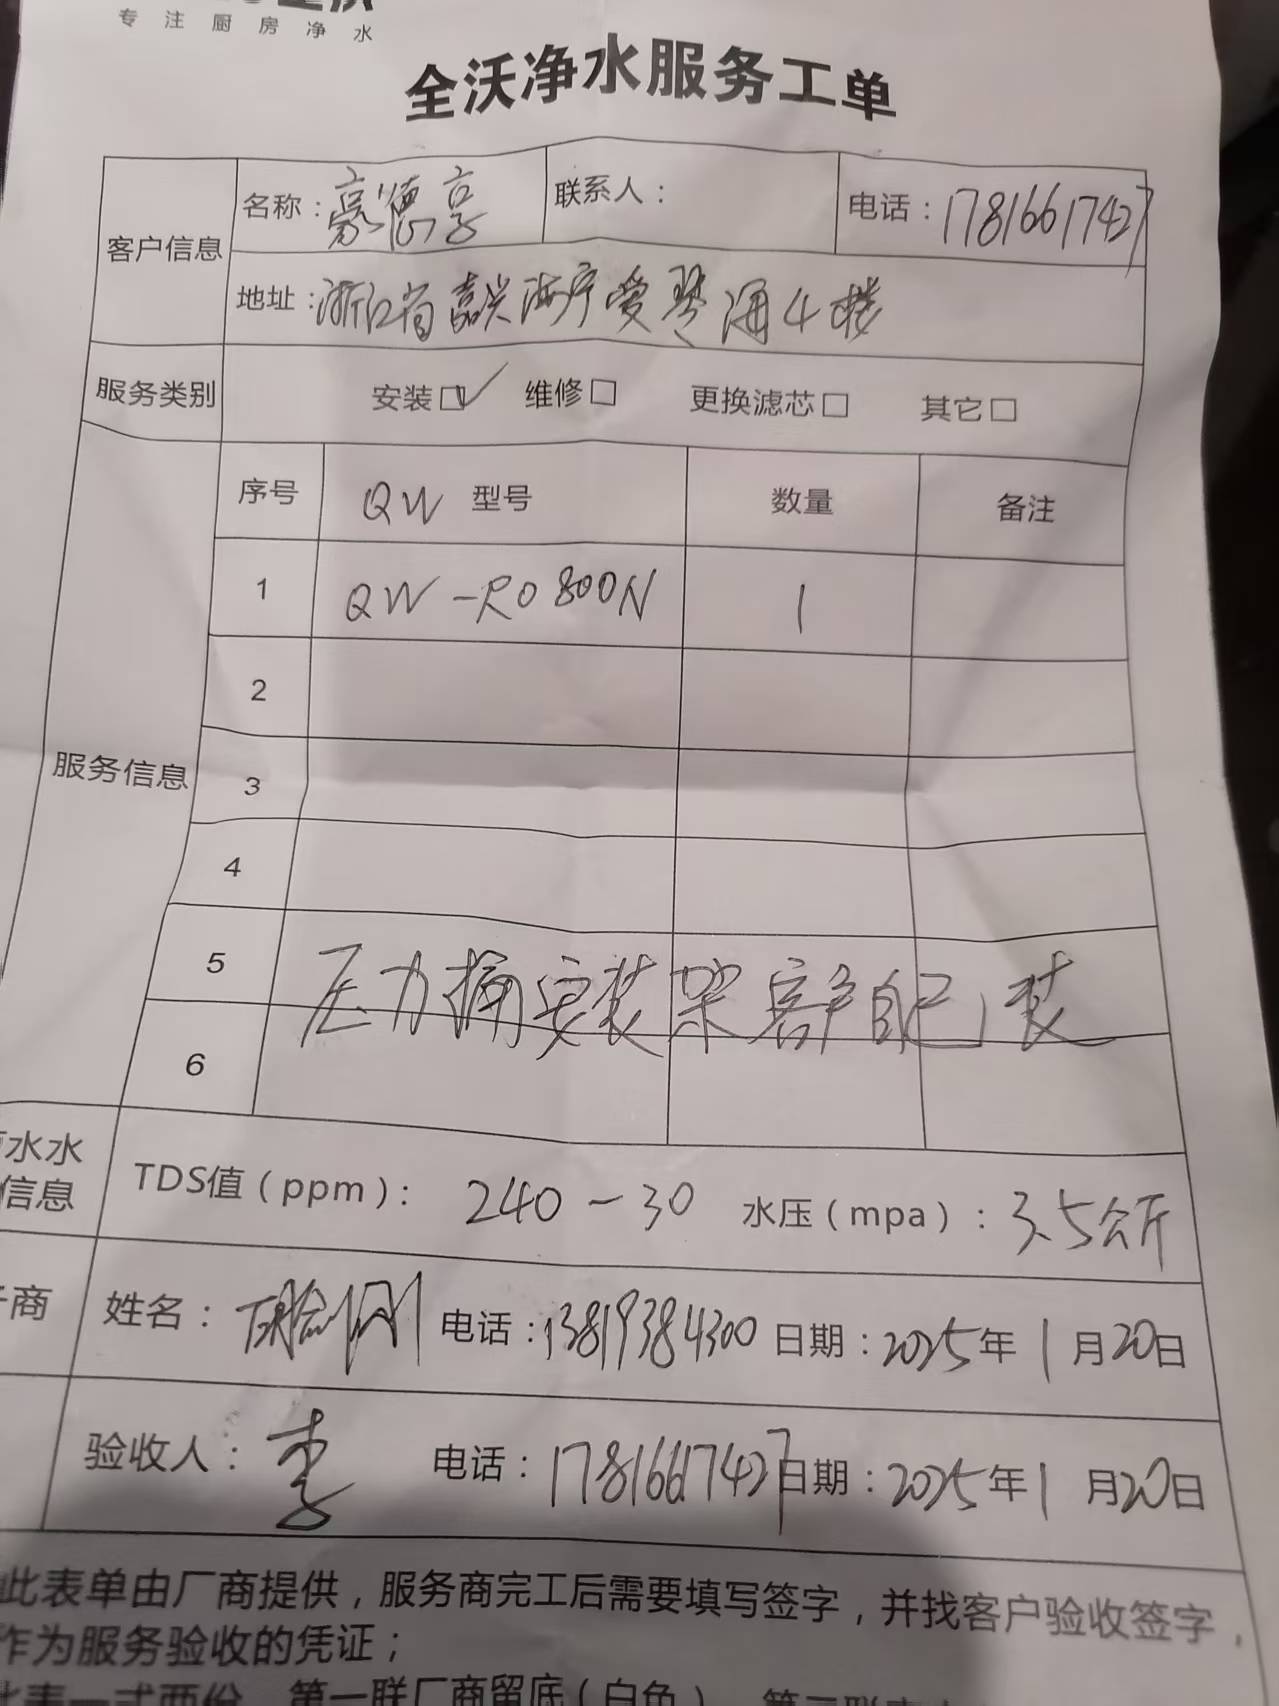 专注厨房净水
全沃净水服务工单
客户信息
名称：豪德亨 联系人： 电话：17816617427
地址：浙江省嘉兴海宁爱琴海4楼
服务类别 安装☑ 维修□ 更换滤芯□ 其它□
服务信息
序号 QW 型号 数量 备注
1 QW-RO800N 1
2
3
4
5 压力桶安装架客户自己装
6
水水
信息
TDS值（ppm）： 240-30 水压（mpa）：3.5公斤
商
姓名： 电话：13819384300 日期：2025年1月20日
验收人：李 电话：17816617427 日期：2025年1月20日
此表单由厂商提供，服务商完工后需要填写签字，并找客户验收签字，
作为服务验收的凭证；
表一式两份 第一联厂商留底（白色）